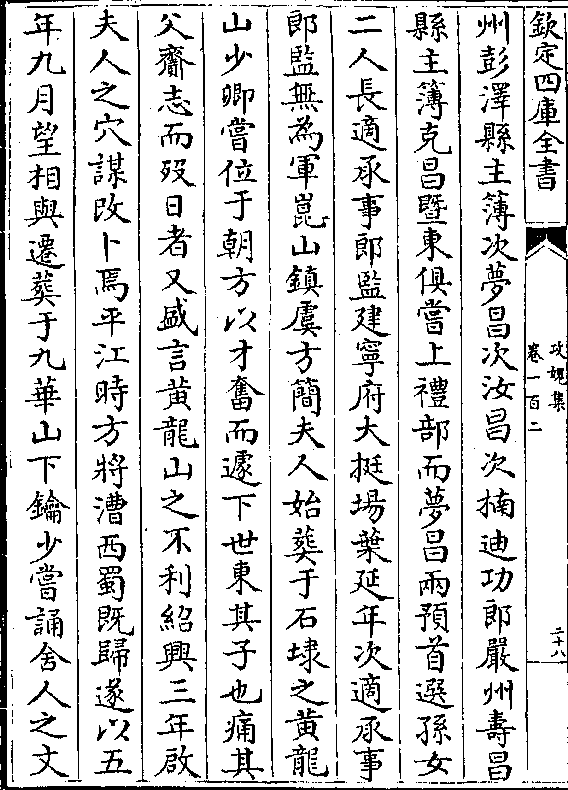 欽定四庫全書
攻媿集
卷一百二
二十八
州彭澤縣主簿次夢昌次汝昌次楠迪功郎嚴州壽昌
縣主簿克昌暨東俱嘗上禮部而夢昌兩預首選孫女
二人長適承事郎監建寧府大挺場葉延年次適承事
郎監無為軍崑山鎮虞方簡夫人始葬于石埭之黃龍
山少卿嘗位于朝方以才奮而遽下世東其子也痛其
父齎志而歿日者又盛言黃龍山之不利紹興三年啟
夫人之穴謀改卜焉平江時方將漕西蜀既歸遂以五
年九月望相與遷葬于九華山下鑰少嘗誦舍人之文